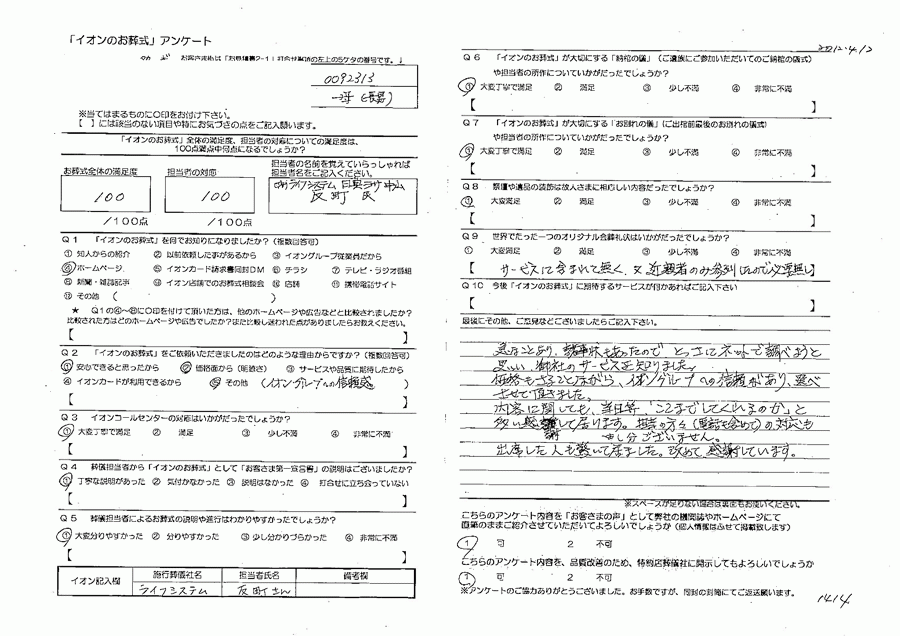 「イオンのお葬式」アンケート
0092313
※当てはまるものに○印をお付け下さい。
【　】には該当のない項目や特にお気づきの点をご記入願います。
「イオンのお葬式」全体の満足度、担当者の対応についての満足度は、
100点満点中何点になるでしょうか？
お葬式全体の満足度
100
/100点
担当者の対応
100
/100点
担当者の名前を覚えていらっしゃれば
担当者名をご記入ください。
Q1 「イオンのお葬式」を何でお知りになりましたか？（複数回答可）
① 知人からの紹介 ② 以前依頼した事があるから ③ イオングループ従業員だから
④ ホームページ ⑤ イオンカード請求書同封DM ⑥ チラシ ⑦ テレビ・ラジオ番組
⑧ 新聞・雑誌記事 ⑨ イオン店舗でのお葬式相談会 ⑩ 店舗 ⑪ 携帯電話サイト
⑫ その他 （　）
★ Q1の④～⑫に○印を付けて頂いた方は、他のホームページや広告などと比較されましたか？
比較された方はどのホームページや広告でしたか？また比較し迷われた点がありましたらお教えください。
【　】
Q2 「イオンのお葬式」をご依頼いただきましたのはどのような理由からですか？（複数回答可）
① 安心できると思ったから ② 価格面から（明瞭さ） ③ サービスや品質に期待したから
④ イオンカードが利用できるから ⑤ その他 （イオングループへの信頼感）
【　】
Q3 イオンコールセンターの対応はいかがだったでしょうか？
① 大変丁寧で満足 ② 満足 ③ 少し不満 ④ 非常に不満
【　】
Q4 葬儀担当者から「イオンのお葬式」として「お客さま第一宣言書」の説明はございましたか？
① 丁寧な説明があった ② 気付かなかった ③ 説明はなかった ④ 打合せに立ち会っていない
【　】
Q5 葬儀担当者によるお葬式の説明や進行はわかりやすかったでしょうか？
① 大変分りやすかった ② 分りやすかった ③ 少し分りづらかった ④ 非常に不満
【　】
イオン記入欄 施行葬儀社名 担当者氏名 備考欄
ライフシステム 反町さん
2012.4.12
Q6 「イオンのお葬式」が大切にする「納棺の儀」（ご遺族にご参加いただいてのご納棺の儀式）
や担当者の所作についていかがだったでしょうか？
① 大変丁寧で満足 ② 満足 ③ 少し不満 ④ 非常に不満
【　】
Q7 「イオンのお葬式」が大切にする「お別れの儀」（ご出棺前最後のお別れの儀式）
や担当者の所作についていかがだったでしょうか？
① 大変丁寧で満足 ② 満足 ③ 少し不満 ④ 非常に不満
【　】
Q8 祭壇や遺品の装飾は故人さまに相応しい内容だったでしょうか？
① 大変満足 ② 満足 ③ 少し不満 ④ 非常に不満
【　】
Q9 世界でたった一つのオリジナル会葬礼状はいかがだったでしょうか？
① 大変満足 ② 満足 ③ 少し不満 ④ 非常に不満
【 サービスに含まれて無く、又 近親者のみ参列なので必要無し】
Q10 今後「イオンのお葬式」に期待するサービスが何かあればご記入下さい
【　】
最後にその他、ご意見などございましたらご記入下さい。
急なことあり、諸事情もあったので、とっさにネットで調べようと
思い、御社のサービスを知りました。
価格もさることながら、イオングループへの信頼があり、選べ
させて頂きました。
内容に関しても、当日等、「ここまでしてくれるのか」と
担当の方々（電話も含めて）の対応も
申し分ございません。
出席した人も驚いて居ました。改めて感謝しています。
※スペースが足りない場合は裏面もお使いください。
こちらのアンケート内容を「お客さまの声」として弊社の機関誌やホームページにて
直筆のままご紹介させていただいてよろしいでしょうか（個人情報はふせて掲載致します）
1 可 2 不可
こちらのアンケート内容を、品質改善のため、特約店葬儀社に開示してもよろしいでしょうか
1 可 2 不可
※アンケートのご協力ありがとうございました。お手数ですが、同封の封筒にてご返送願います。
1414